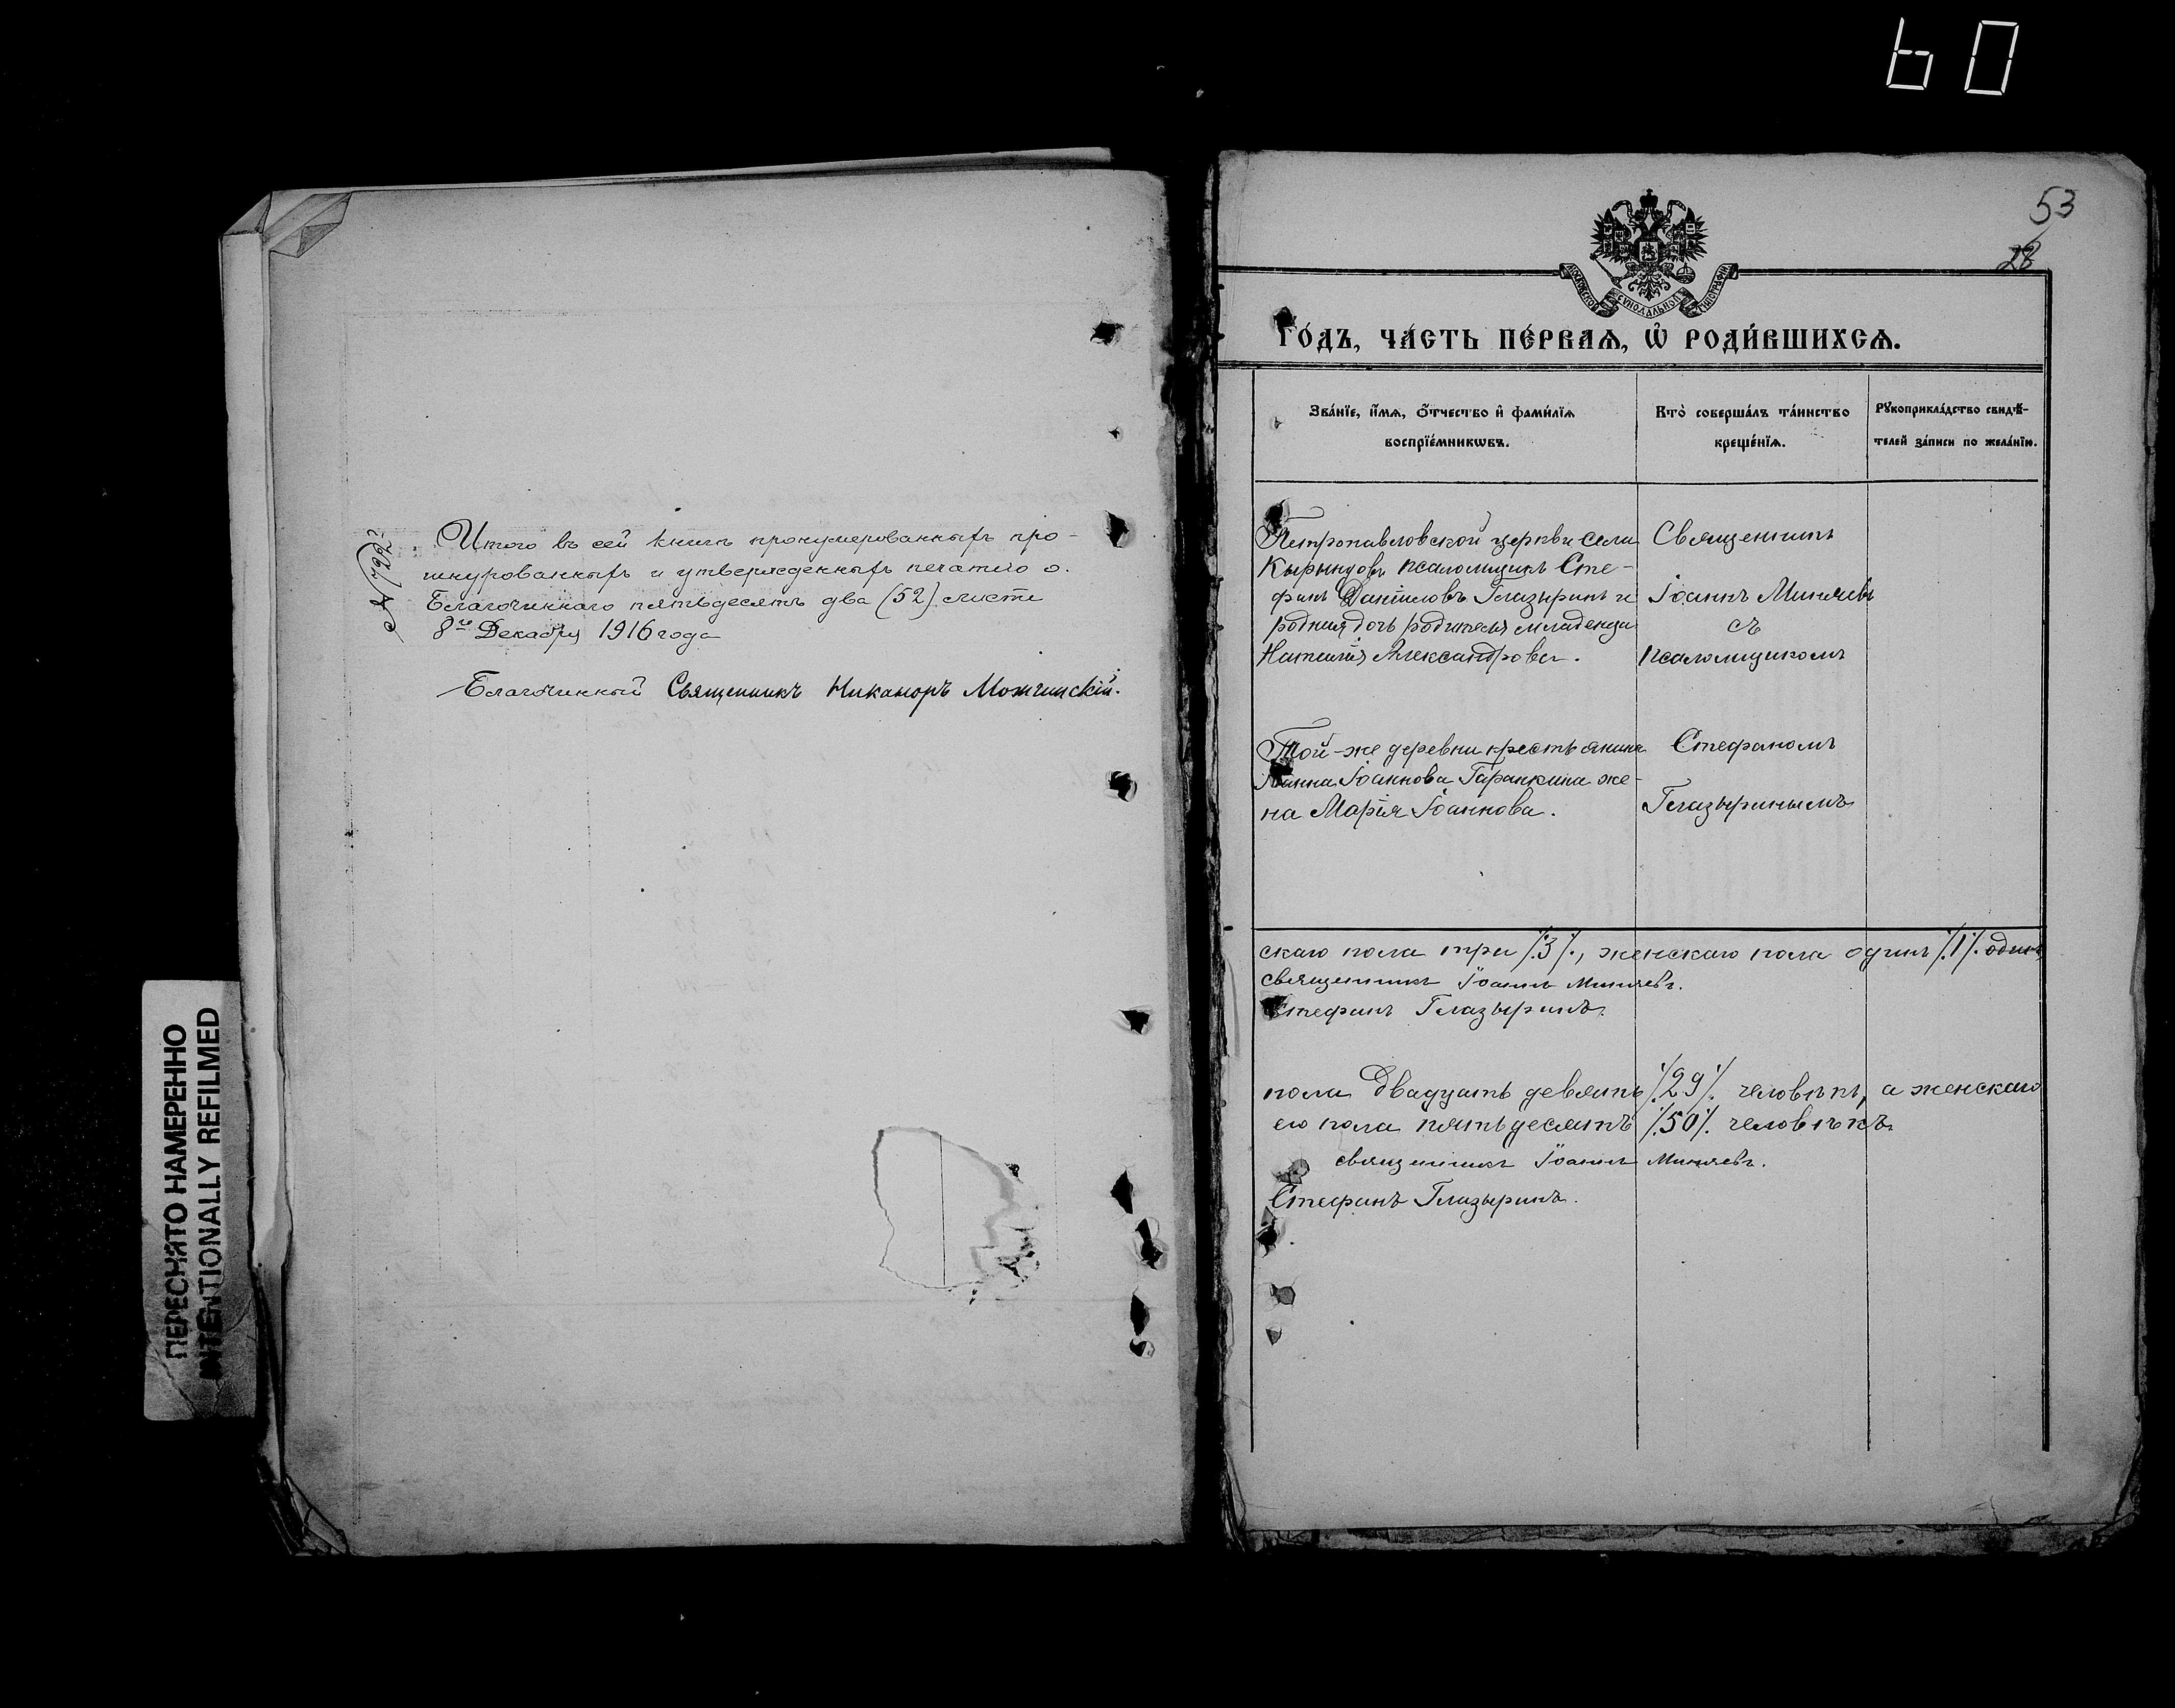 60
№ 792
Итого въ сей книгѣ пронумерованныхъ про-
шнурованныхъ и утвержденныхъ печатью о.
Благочиннаго пятьдесятъ два (52) листа
8го Декабря 1916 года
Благочинный Священникъ Никаноръ
ПЕРЕСНЯТО НАМЕРЕННО
INTENTIONALLY REFILMED
53
28
МОСКОВСКОЙ СѴНОДАЛЬНОЙ ТИПОГРАФІИ
Го́дъ, ча́сть пе́рваѧ, ѽ роди́вшихсѧ.
Зва́нїе, и҆́мѧ, ѻ҆́тчество и҆ фами́лїѧ
воспрїе́мникѡвъ.
Кто̀ соверша́лъ та́инство
креще́нїѧ.
Рꙋкоприкла́дство свидѣ́-
телей за́писи по жела́нїю.
Петропавловской церкви села
Кырындовъ псаломщикъ Сте-
фанъ Даніиловъ Глазыринъ и
родная дочь родителя младенца
Наталія Александрова.
Священникъ
Іоаннъ Миняевъ
съ
псаломщикомъ
Той-же деревни крестьянина
Іоанна Іоаннова Гаранкина же-
на Марія Іоаннова.
Стефаномъ
Глазыринымъ
скаго пола три /.3/., женскаго пола одинъ /.1/. одинъ
священникъ Іоаннъ Миняевъ.
Стефанъ Глазыринъ.
пола двадцать девять /.29/. человѣкъ, а женскаго
его пола пятьдесятъ /.50/. человѣкъ.
священникъ Іоаннъ Миняевъ.
Стефанъ Глазыринъ.